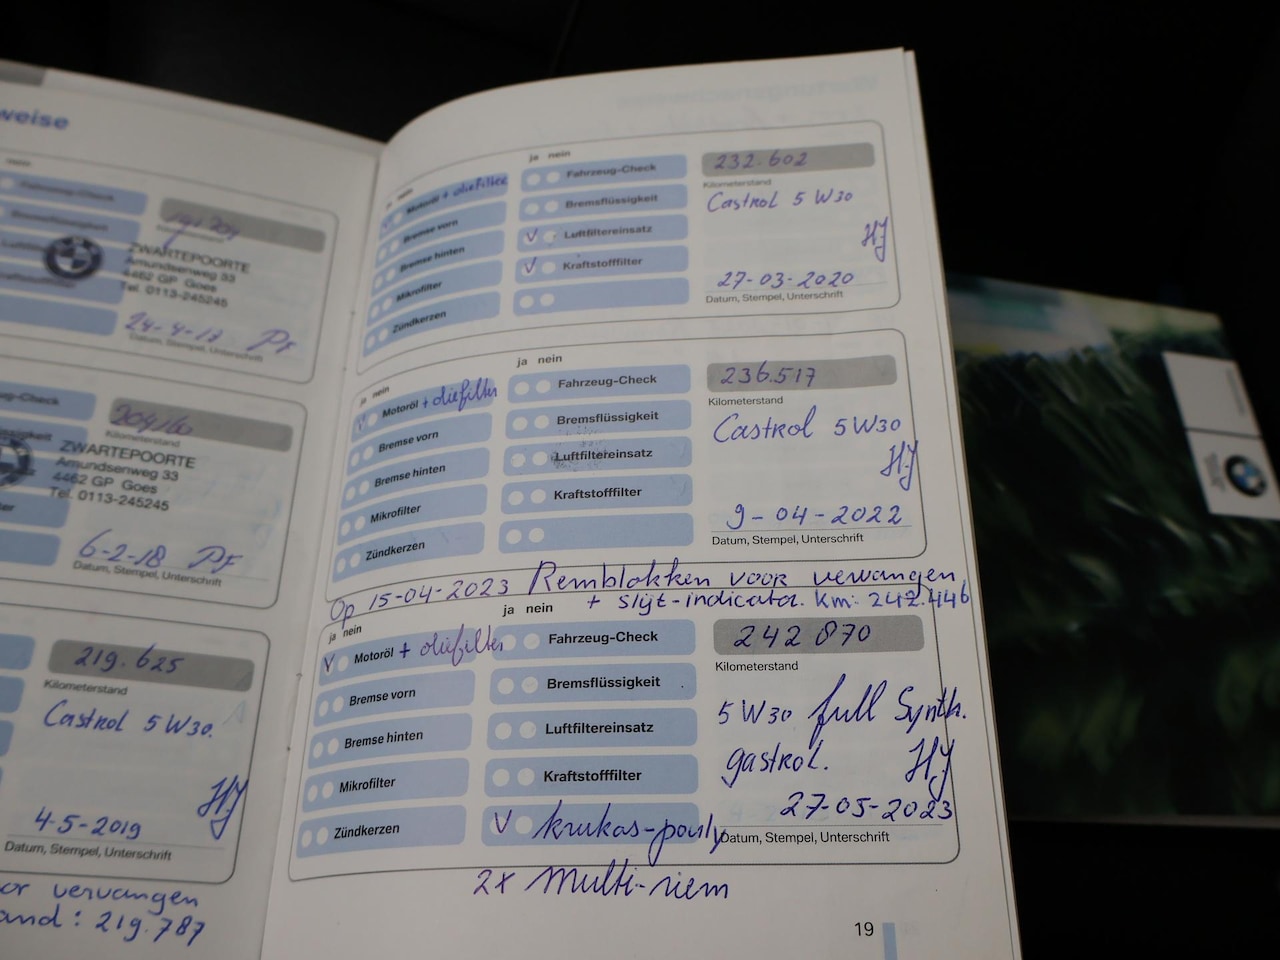 weise
nein
Fahrzeug-Check
ZWARTEPOORTE
Amundsenweg 33
4462 GP Goes
Tel. 0113-245245
Datum, Stempel, Unterschrift
Kilometerstand
ZWARTEPOORTE
Amundsenweg 33
4462 GP Goes
Tel. 0113-245245
6-2-18 PF
Datum, Stempel, Unterschrift
219.625
Kilometerstand
Castrol 5W30.
HJ
4-5-2019
Datum, Stempel, Unterschrift
or vervangen
and: 219.787
ja nein
Motoröl + oliefilter
Bremse vorn
Bremse hinten
Mikrofilter
Zündkerzen
Fahrzeug-Check
Bremsflüssigkeit
V Luftfiltereinsatz
V Kraftstofffilter
232.602
Kilometerstand
Castrol 5W30
HJ
27-03-2020
Datum, Stempel, Unterschrift
ja nein
ja nein
V Motoröl + oliefilter
Bremse vorn
Bremse hinten
Mikrofilter
Zündkerzen
Fahrzeug-Check
Bremsflüssigkeit
Luftfiltereinsatz
Kraftstofffilter
236.517
Kilometerstand
Castrol 5W30
HJ
9-04-2022
Datum, Stempel, Unterschrift
Op 15-04-2023 Remblokken voor vervangen
+ slijt-indicator. km: 242.446
ja nein
ja nein
V Motoröl + oliefilter
Bremse vorn
Bremse hinten
Mikrofilter
Zündkerzen
Fahrzeug-Check
Bremsflüssigkeit
Luftfiltereinsatz
Kraftstofffilter
V krukas-pouly
242 870
Kilometerstand
5W30 full Synth.
gastrol.
HJ
27-05-2023
Datum, Stempel, Unterschrift
2x multi-riem
19